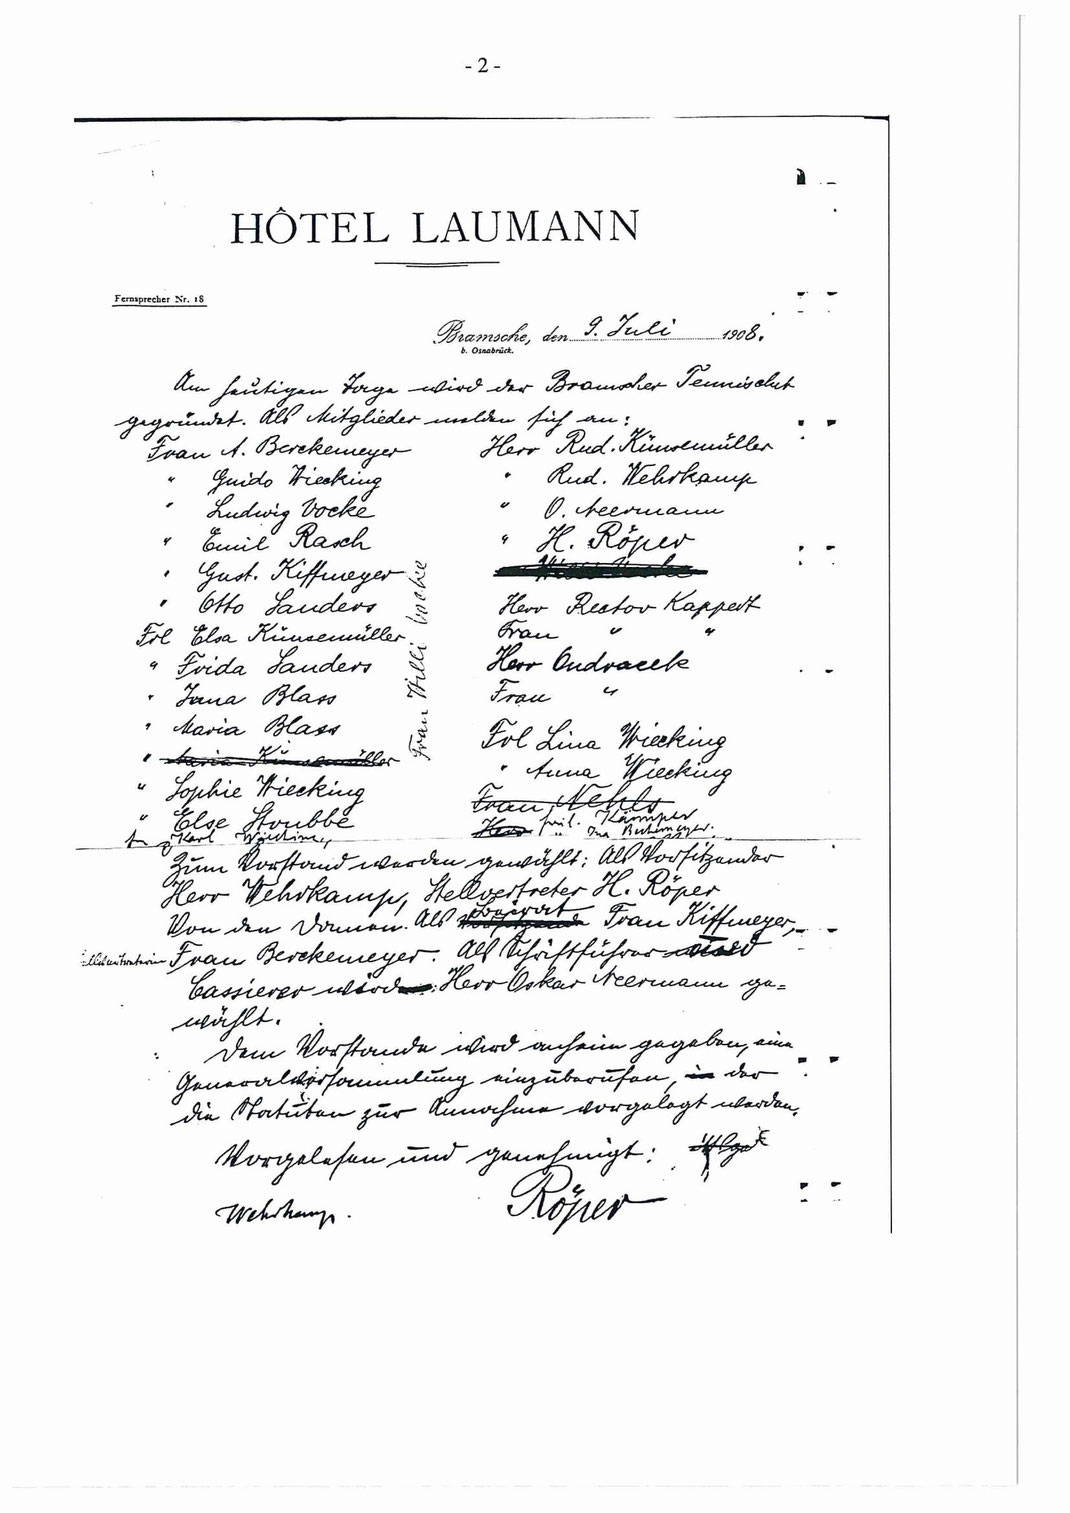 - 2 -
HÔTEL LAUMANN
Fernsprecher Nr. 18
Bramsche, den 9. Juli 1908.
b. Osnabrück.
Am heutigen Tage wird der Bramscher Tennisclub
gegründet. Als Mitglieder melden sich an:
Frau A. Berckemeyer
" Guido Wiecking
" Ludwig Vocke
" Emil Rasch
" Gust. Kiffmeyer
" Otto Sanders
Frl Elsa Künsemüller
" Frida Sanders
" Jana Blass
" Maria Blass
" Maria Künsemüller
" Sophie Wiecking
" Else Stubbe
Frau Willi Vocke
Herr Rud. Künsemüller
" Rud. Wehrkamp
" O. Neermann
" H. Röper
Herr Rector Kappert
Frau " "
Herr Ondracek
Frau "
Frl Lina Wiecking
" Anna Wiecking
Frau Nehls
Herr frl. Kämper
" Karl
Zum Vorstand werden gewählt: Als Vorsitzender
Herr Wehrkamp, Stellvertreter H. Röper
Von den Damen. Als Frau Kiffmeyer,
Frau Berckemeyer. Als Schriftführer und
Cassierer wird: Herr Oskar Neermann ge=
wählt.
Dem Vorstande wird anheim gegeben, eine
Generalversammlung einzuberufen, in der
die Statuten zur Annahme vorgelegt werden.
Vorgelesen und genehmigt:
Wehrkamp.
Röper